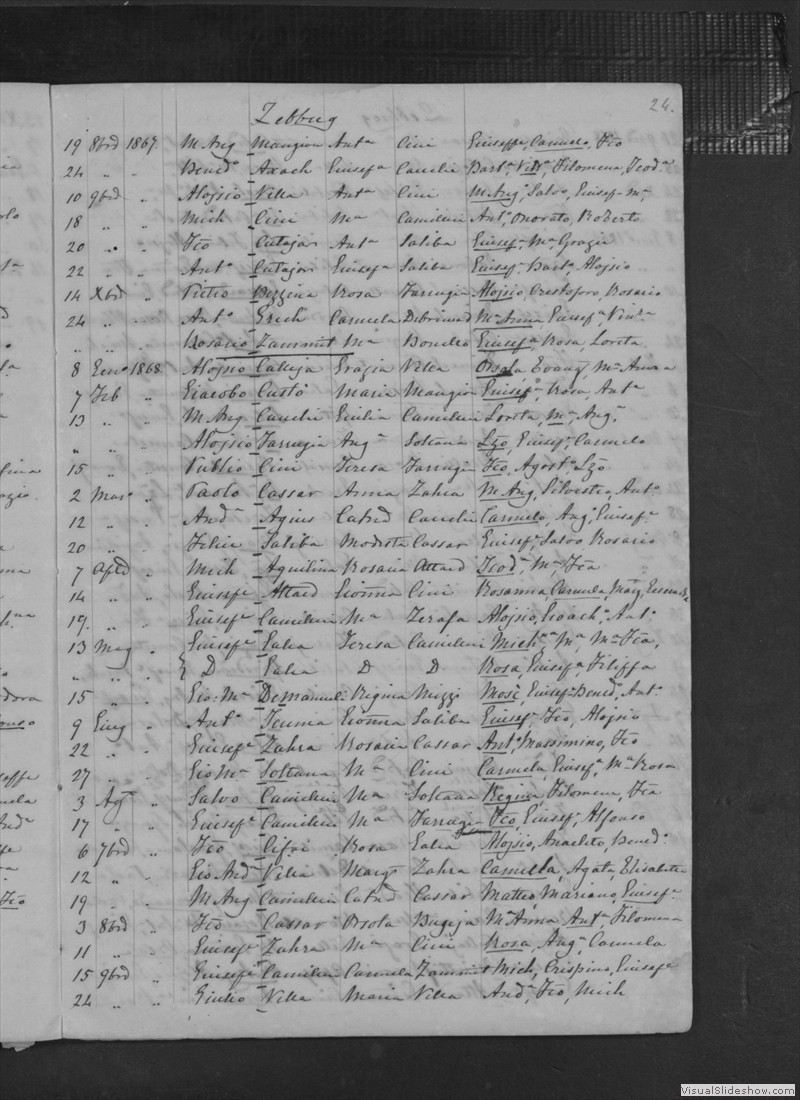 24.
Zebbug
19 8brẽ 1867. M Ang Mangion Antᵃ Cini Giuseppe, Carmelo, Fco
24 " " Bened° Axach Giusefᵃ Camilleri Bartᵃ, Filomena, Teodᵃ
10 9brẽ " Aloisio Vella Antᵃ Cini M Angᵒ, Salvo, Giusef-Mᵃ
18 " " Mich Cini Mᵃ Camilleri Antᵒ, Onorato, Roberto
20 " " Fco Cutajar Antᵃ Saliba Giusefᵃ Mᵃ Grazia
22 " " Antᵒ Cutajar Giusefᵃ Saliba Giusefᵉ, Bartᵒ, Aloisio
14 Xbrẽ " Pietro Bezzina Rosa Farrugia Aloisio, Crestoforo, Rosario
24 " " Antᵒ Grech Carmela Debrincat Mᵃ Anna, Giusefᵃ
" " " Rosario Zammit Mᵃ Bondeo Giusefᵃ, Rosa, Loreta
8 Genᵒ 1868 Aloisio Calleja Grazia Vella Orsola Evang, Mᵃ Anna
7 Feb " Giacobo Custò Maria Mangion Giusefᵃ, Rosa, Antᵃ
13 " " M Ang Camilleri Giulia Camilleri Loreta, Mᵃ, Angᵃ
" " " Aloisio Farrugia Angᵃ Soltana Lzo, Giusefᵉ, Carmelo
15 " " Publio Cini Teresa Farrugia Fco, Agostᵒ Lzo
2 Marᵒ " Paolo Cassar Anna Zahra M Ang, Silvestro, Antᵒ
12 " " Andᵃ Agius Catnd Camilleri Carmelo, Angᵒ, Giusefᵉ
20 " " Felice Saliba Modesta Cassar Giusefᵉ, Salvo Rosario
7 Aplẽ " Mich Aquilina Rosaria Attard Teodᵃ, Mᵃ Fca
14 " " Giusefᵉ Attard Gionna Cini Rosanna, Carmela, Marg
19 " " Giusefᵉ Camilleri Mᵃ Zerafa Aloisio, Gioachᵒ, Antᵒ
13 Mag " Giusefᵉ Galea Teresa Camilleri Michᵃ, Mᵃ, Mᵃ Fca,
" " " { D Galea D D Rosa, Giusefᵃ, Filippa
15 " " Gio: Mᵃ Demanuele Regina Mizzi Mosè, Giusef-Benedᵒ, Antᵒ
9 Giug " Antᵒ Teuma Gionna Saliba Giusefᵉ, Fco, Aloisio
22 " " Giusefᵉ Zahra Rosaria Cassar Antᵒ, Massimino, Fco
27 " " Gio Mᵃ Soltana Mᵃ Cini Carmela, Giusefᵃ, Mᵃ Rosa
3 Agᵒ " Salvo Camilleri Mᵃ Soltana Regina Filomena, Fca
17 " " Giusefᵉ Camilleri Mᵃ Farrugia Fco, Giusefᵉ, Alfonso
6 7brẽ " Fco Cifai Rosa Galea Aloisio, Anacleto, Benedᵒ
12 " " Gio Andᵃ Vella Margᵗ Zahra Camilla, Agata, Elisabetta
19 " " M Ang Camilleri Catnd Cassar Matteo, Mariano, Giusefᵉ
3 8brẽ " Fco Cassar Orsola Bugeja Mᵃ Anna, Antᵃ, Filomena
11 " " Giusefᵉ Zahra Mᵃ Cini Rosa, Angᵃ, Carmela
15 9brẽ " Giusefᵉ Camilleri Carmela Zammit Mich, Crispino, Giusefᵉ
24 " " Giulio Vella Maria Vella Andᵃ, Fco, Mich
VisualSlideshow.com